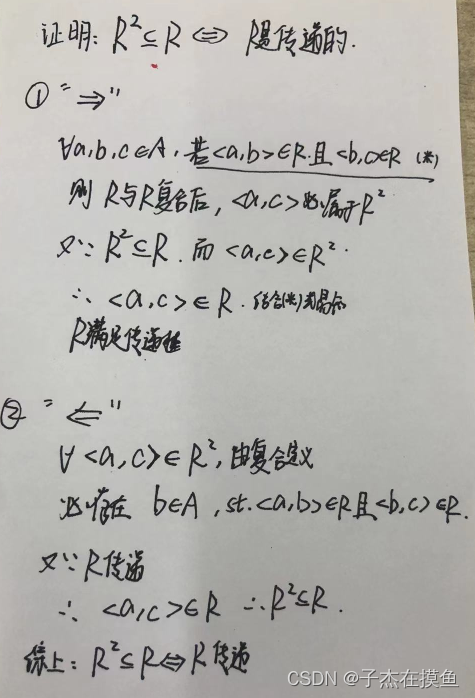 证明: R²⊆R ⇔ R是传递的.
① "⇒"
∀a,b,c∈A, 若<a,b>∈R.且<b,c>∈R (*)
则 R与R复合后, <a,c>必属于R²
又∵ R²⊆R. 而 <a,c>∈R².
∴ <a,c>∈R. 结合(*)式易知
R满足传递性
② "⇐"
∀<a,c>∈R², 由复合定义
必存在 b∈A, st.<a,b>∈R且<b,c>∈R.
又∵R传递
∴ <a,c>∈R ∴R²⊆R.
综上: R²⊆R⇔R传递
CSDN @子杰在摸鱼